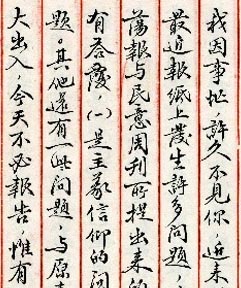 我因事忙，許久不見你，近来
最近報紙上發生許多問題，
蕩報与民意周刊所提出来的
有答覆，（一）是主義信仰的问
题，其他還有一些问题，与原
大出入，今天不必報告 惟有